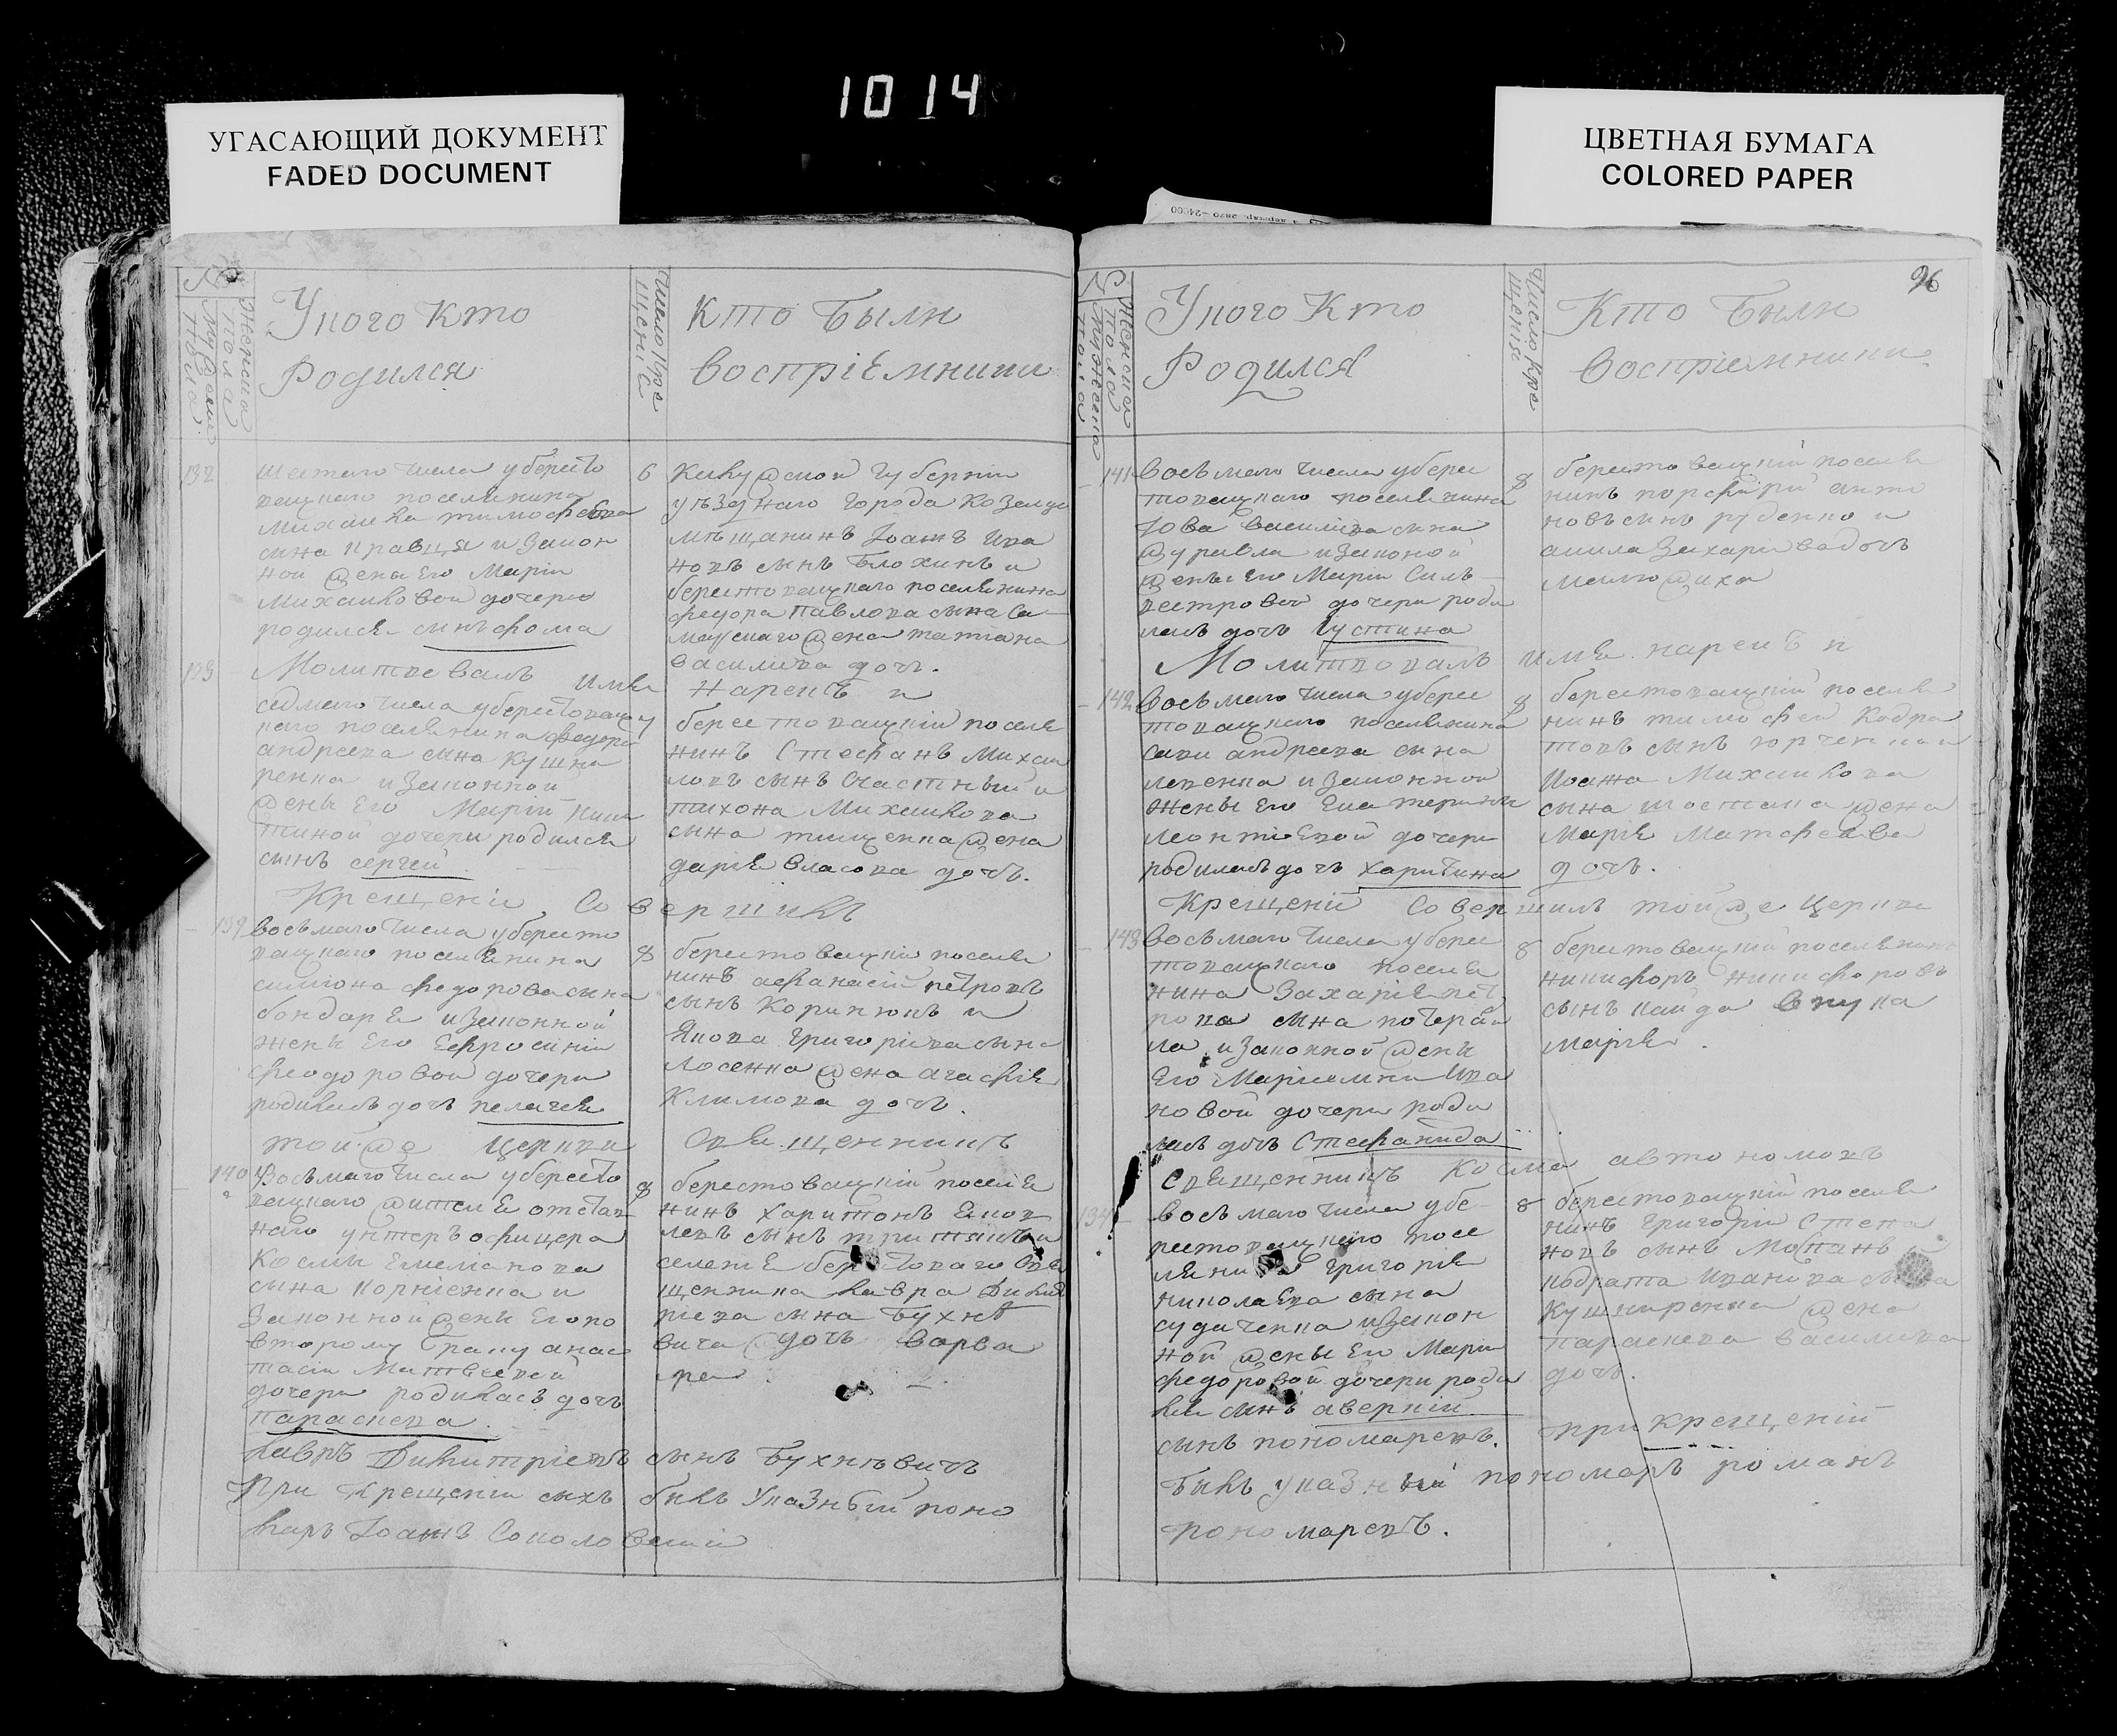 1014
УГАСАЮЩИЙ ДОКУМЕНТ
FADED DOCUMENT
ЦВЕТНАЯ БУМАГА
COLORED PAPER
96
Женска пола
Мужеска пола
У кого кто
Родился
Число Кре
щеніе
Кто были
воспріемники
шестаго числа у бересто
вацкаго поселянина
михаила тимофеева
сына кравця и закон
ной жены его Маріи
Михаиловой дочери
родился сынъ фома
6
уѣзднаго города Козельца
мѣщанинъ Іоаннъ Ива
новъ сынъ Блохинъ и
берестовацкаго поселянина
федора Павлова сына
жена татіана
василіева дочь.
Молитвовалъ имя нарекъ и
седмаго числа у берестовац
каго поселянина федора
андреева сына кушни
ренка и законной
жены его Маріи ники
тиной дочери родился
сынъ сергей.
7
берестовацкій поселя
нинъ Стефанъ Михаи
ловъ сынъ Счастный и
тихона Михаилова
сына тищенка жена
дарія власова дочь.
Крещеніе Совершилъ
139
восьмаго числа у бересто
вацкаго поселянина
симіона федорова сына
бондаря и законной
жены его Ефросиніи
феодоровой дочери
родилась дочь пелагея
8
берестовацкій поселя
нинъ афанасій петровъ
сынъ Коринюкъ и
Якова григоріева сына
Лосенка жена агафія
Климова дочь.
той же церкви Священникъ
140
Восьмаго числа у бересто
вацкаго жителя отстав
наго унтеръ офицера
Космы Емеліанова
сына корніенка и
Законной жены его по
второму браку анас
тасіи Матвеевой
дочери родилась дочь
параскева.
8
берестовацкій поселя
нинъ харитонъ Яков
левъ сынъ
щенника лавра Димит
ріева сына Бухне
вича дочь варва
ра.
лавръ Димитріевъ сынъ Бухневичъ
При Крещеніи сихъ былъ Указный поно
марь Іоаннъ Соколовский
Женска пола
Мужеска пола
У кого кто
Родился
Число Кре
щенія
Кто были
воспріемники
141
восьмаго числа у берес
товацкаго поселянина
Іова василіева сына
журавля и законой
жены его Маріи Силь
вестровой дочери роди
лась дочь Іустина
8
берестовацкій поселя
нинъ порфирій анто
новъ сынъ руденко и
акила захаріева дочь
Молитвовалъ имя нарекъ и
142
восьмаго числа у берес
товацкаго поселянина
савы андреева сына
левенка и законной
жены его Екатерины
леонтіевой дочери
родилась дочь харитина
8
берестовацкій поселя
нинъ тимофей Кодра
товъ сынъ юрченко и
Иоана Михаилова
сына шостака жена
Марія Матфеева
дочь.
Крещеніе совершилъ той же Церкви
143
восьмаго числа у берес
товацкаго поселя
нина Захарія пет
рова сына кочерги
ла и законной жены
Его Маріемны Ива
новой дочери роди
лась дочь Стефанида
8
берестовацкій поселянинъ
никифоръ никифоровъ
сынъ кайда внука
марія.
Священникъ Косма автономовъ
134
восьмаго числа у бе
рестовацкаго посе
лянина Григорія
николаева сына
судаченка и закон
ной жены его Маріи
федоровой дочери роди
лся сынъ аверкій
8
берестовацкій поселя
нинъ григорій Степа
новъ сынъ Моканъ и
кодрата иванова сына
Кушниренка жена
параскева василіева
дочь.
сынъ пономаревъ. При крещеній
былъ указный пономарь романъ
пономаревъ.